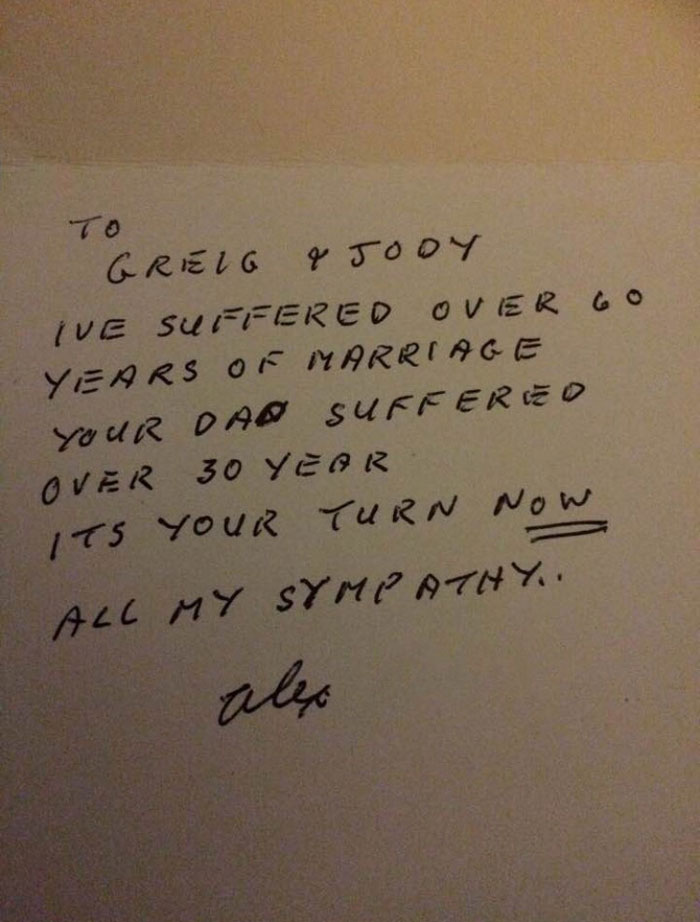 TO
GREIG & JODY
IVE SUFFERED OVER 60
YEARS OF MARRIAGE
YOUR DAD SUFFERED
OVER 30 YEAR
ITS YOUR TURN NOW
ALL MY SYMPATHY..
alex